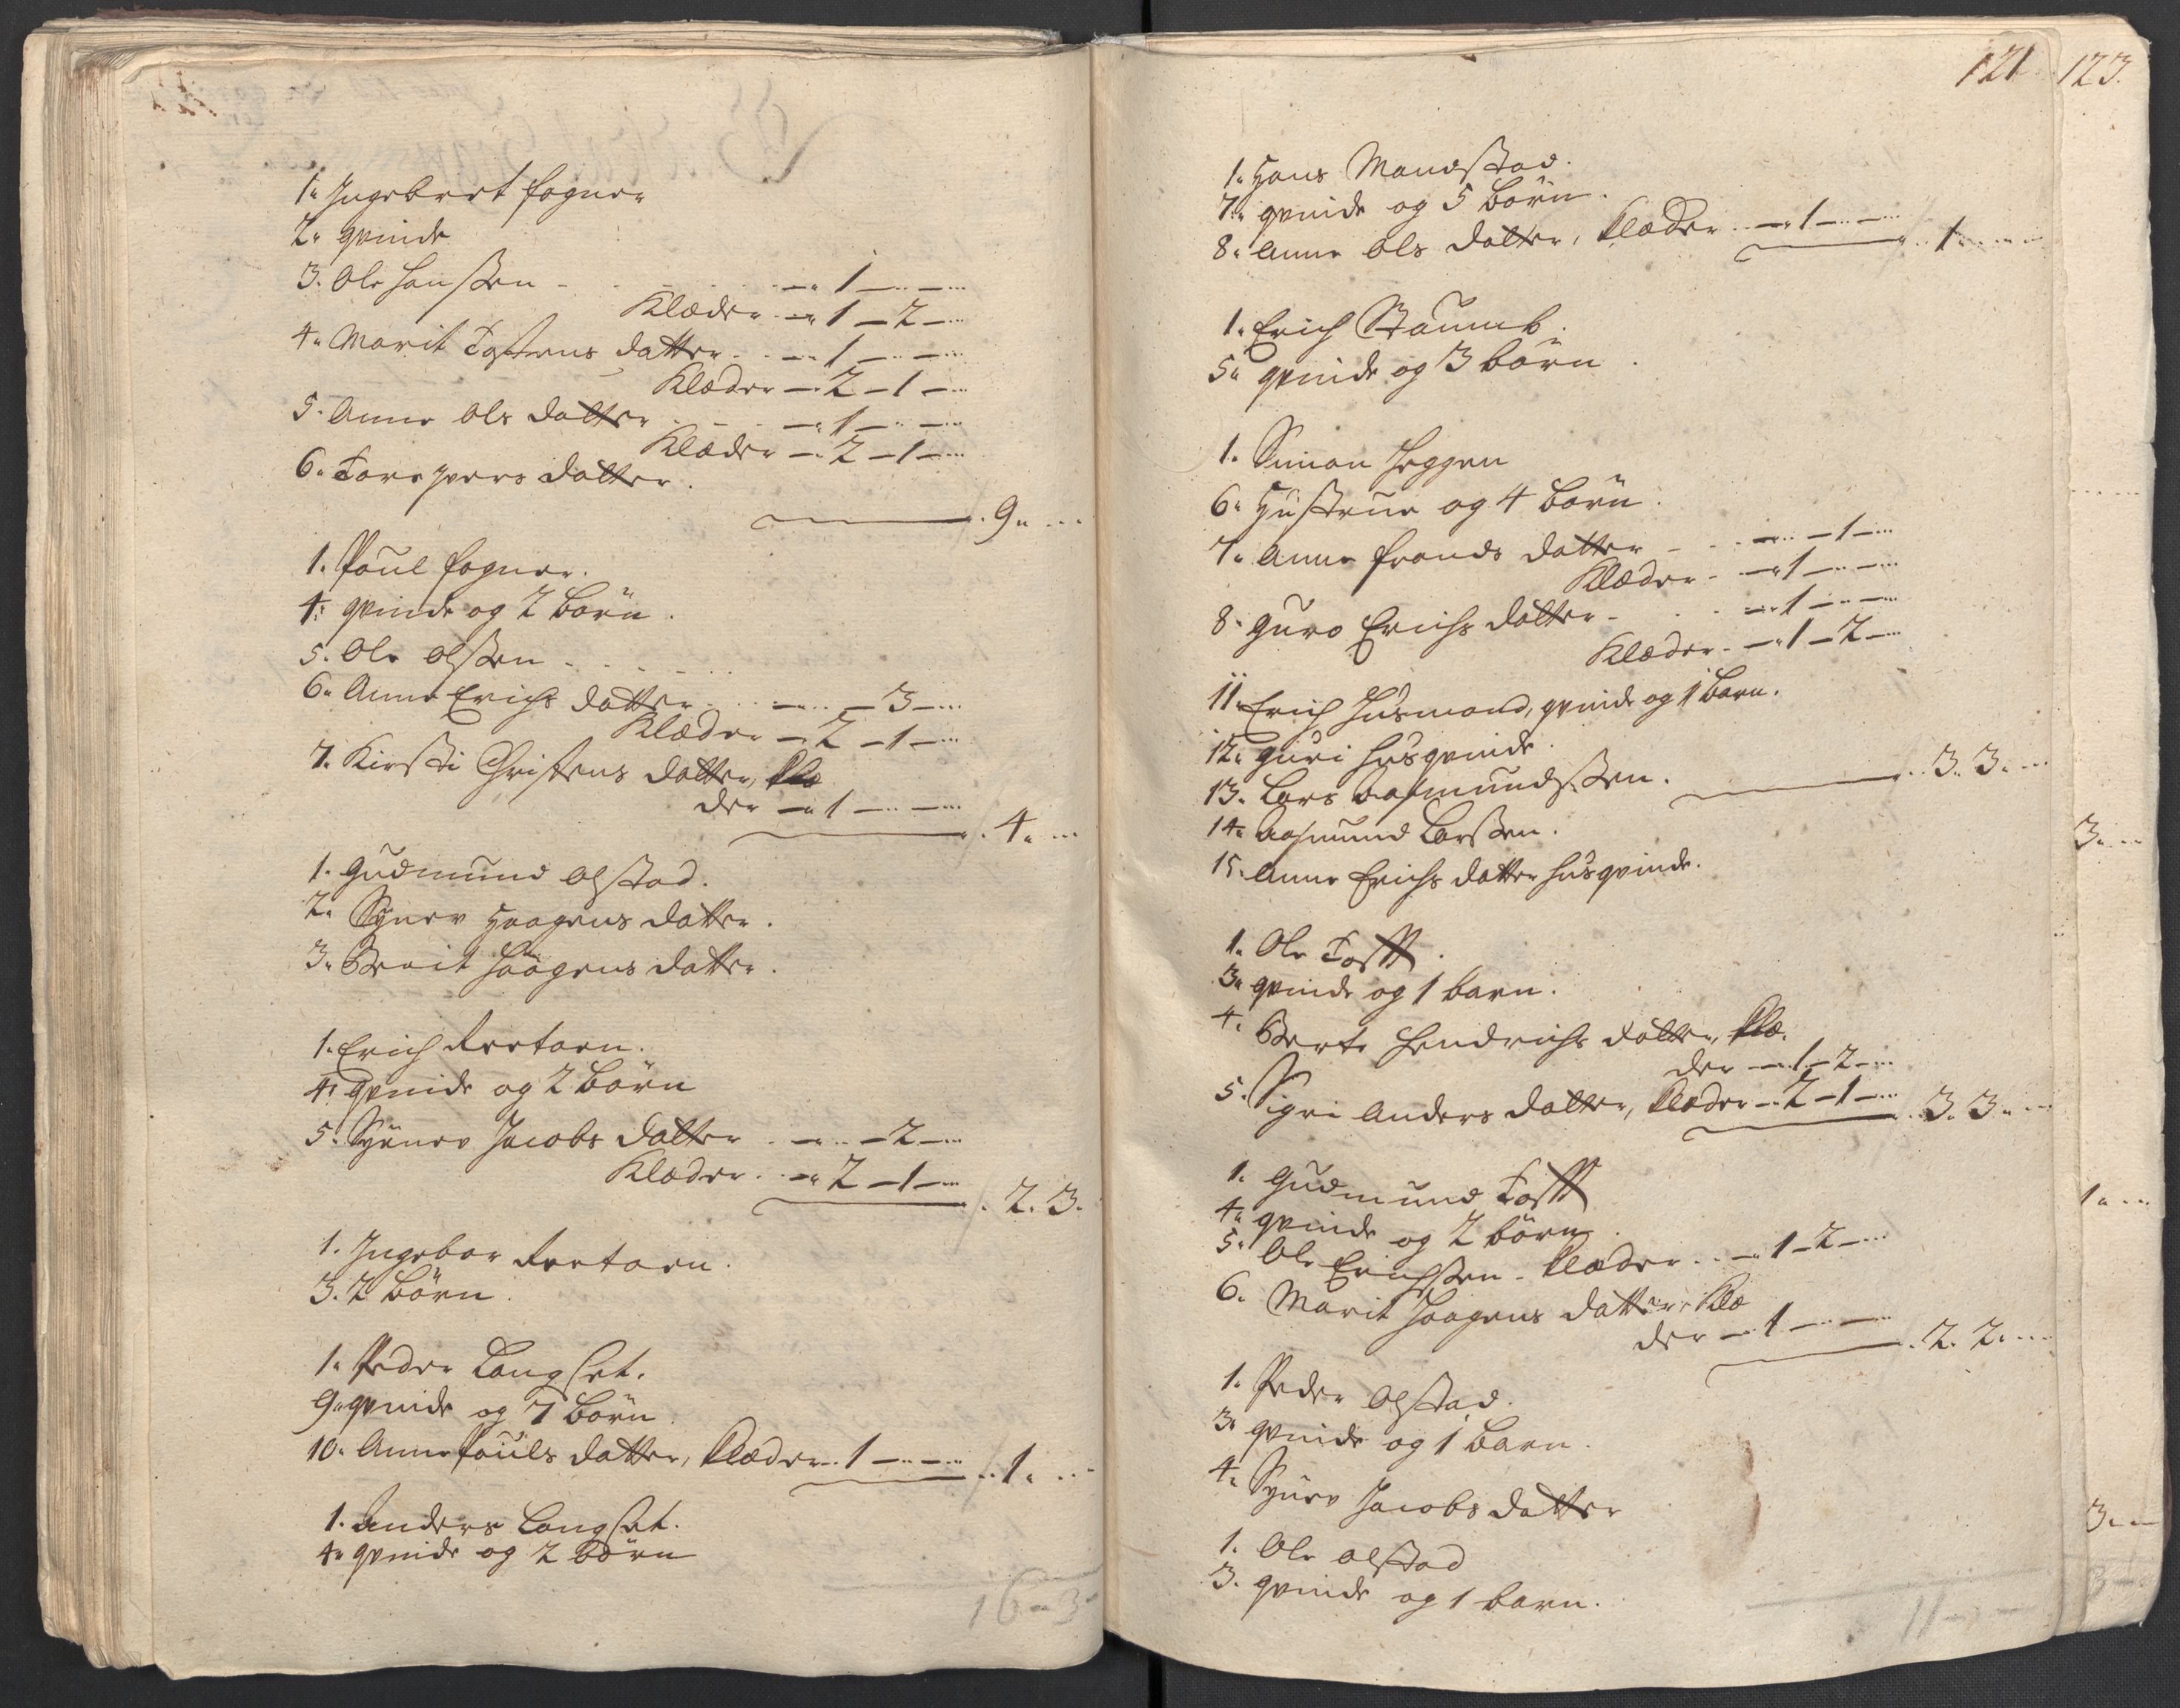 1. Ingebret fogner
2. qvinde
3. Ole Hanssen - - - 1 - -
Klæder - 1 - 2 -
4. Marit Tostens datter - 1 - -
Klæder - 2 - 1 -
5. Anne Ols datter - 1 - -
Klæder - 2 - 1 -
6. Tore Ivers datter.
9. -
1. Poul fogner.
4. qvinde og 2 börn.
5. Ole olssen - - -
6. Anne Erichs datter - - 3 -
Klæder - 2 - 1 -
7. Kirsti Christens datter, klæ
der - 1 - -
4. -
1. Gudmund olstad.
2. Synev Haagens datter.
3. Berit Haagens datter.
1. Erich
4. qvinde og 2 börn
5. Synev Jacobs datter - - 2 -
Klæder - 2 - 1 -
2. 3.
1. Ingebor
3. 2 börn.
1. Peder Langset.
9. qvinde og 7 börn.
10. Anne Pouls datter, klæder. 1 - - 1. -
1. Anders Langset.
4. qvinde og 2 börn
16 - 3 -
121
1. Hans Mandstad.
7. qvinde og 5 börn.
8. Anne Ols datter, klæder - 1 - - 1. -
1. Erich Staumb.
5. qvinde og 3 börn.
1. Simon Heggen
6. Hustrue og 4 börn.
7. Anne frands datter - - - 1 -
Klæder - 1 - -
8. Guro Erichs datter - - 1 - -
Klæder - 1 - 2 -
11. Erich Husmand, qvinde og 1 barn.
12. Guri husqvinde.
13. Lars Aasmundssen. 3. 3. -
14. Aasmund Larssen.
15. Anne Erichs datter husqvinde.
1. Ole Tofft.
3. qvinde og 1 barn.
4. Berte Hendrichs datter, klæ.
der - 1 - 2 -
5. Sigri Anders datter, klæder - 2 - 1 - 3. 3. -
1. Gudmund Tofft
4. qvinde og 2 börn.
5. Ole Erichssen - klæder - 1 - 2 -
6. Marit Haagens datter, klæ
der - 1 - - 2. 2. -
1. Peder olstad.
3. qvinde og 1 barn.
4. Synev Jacobs datter
1. Ole olstad
3. qvinde og 1 barn.
123.
3. -
1. -
3. -